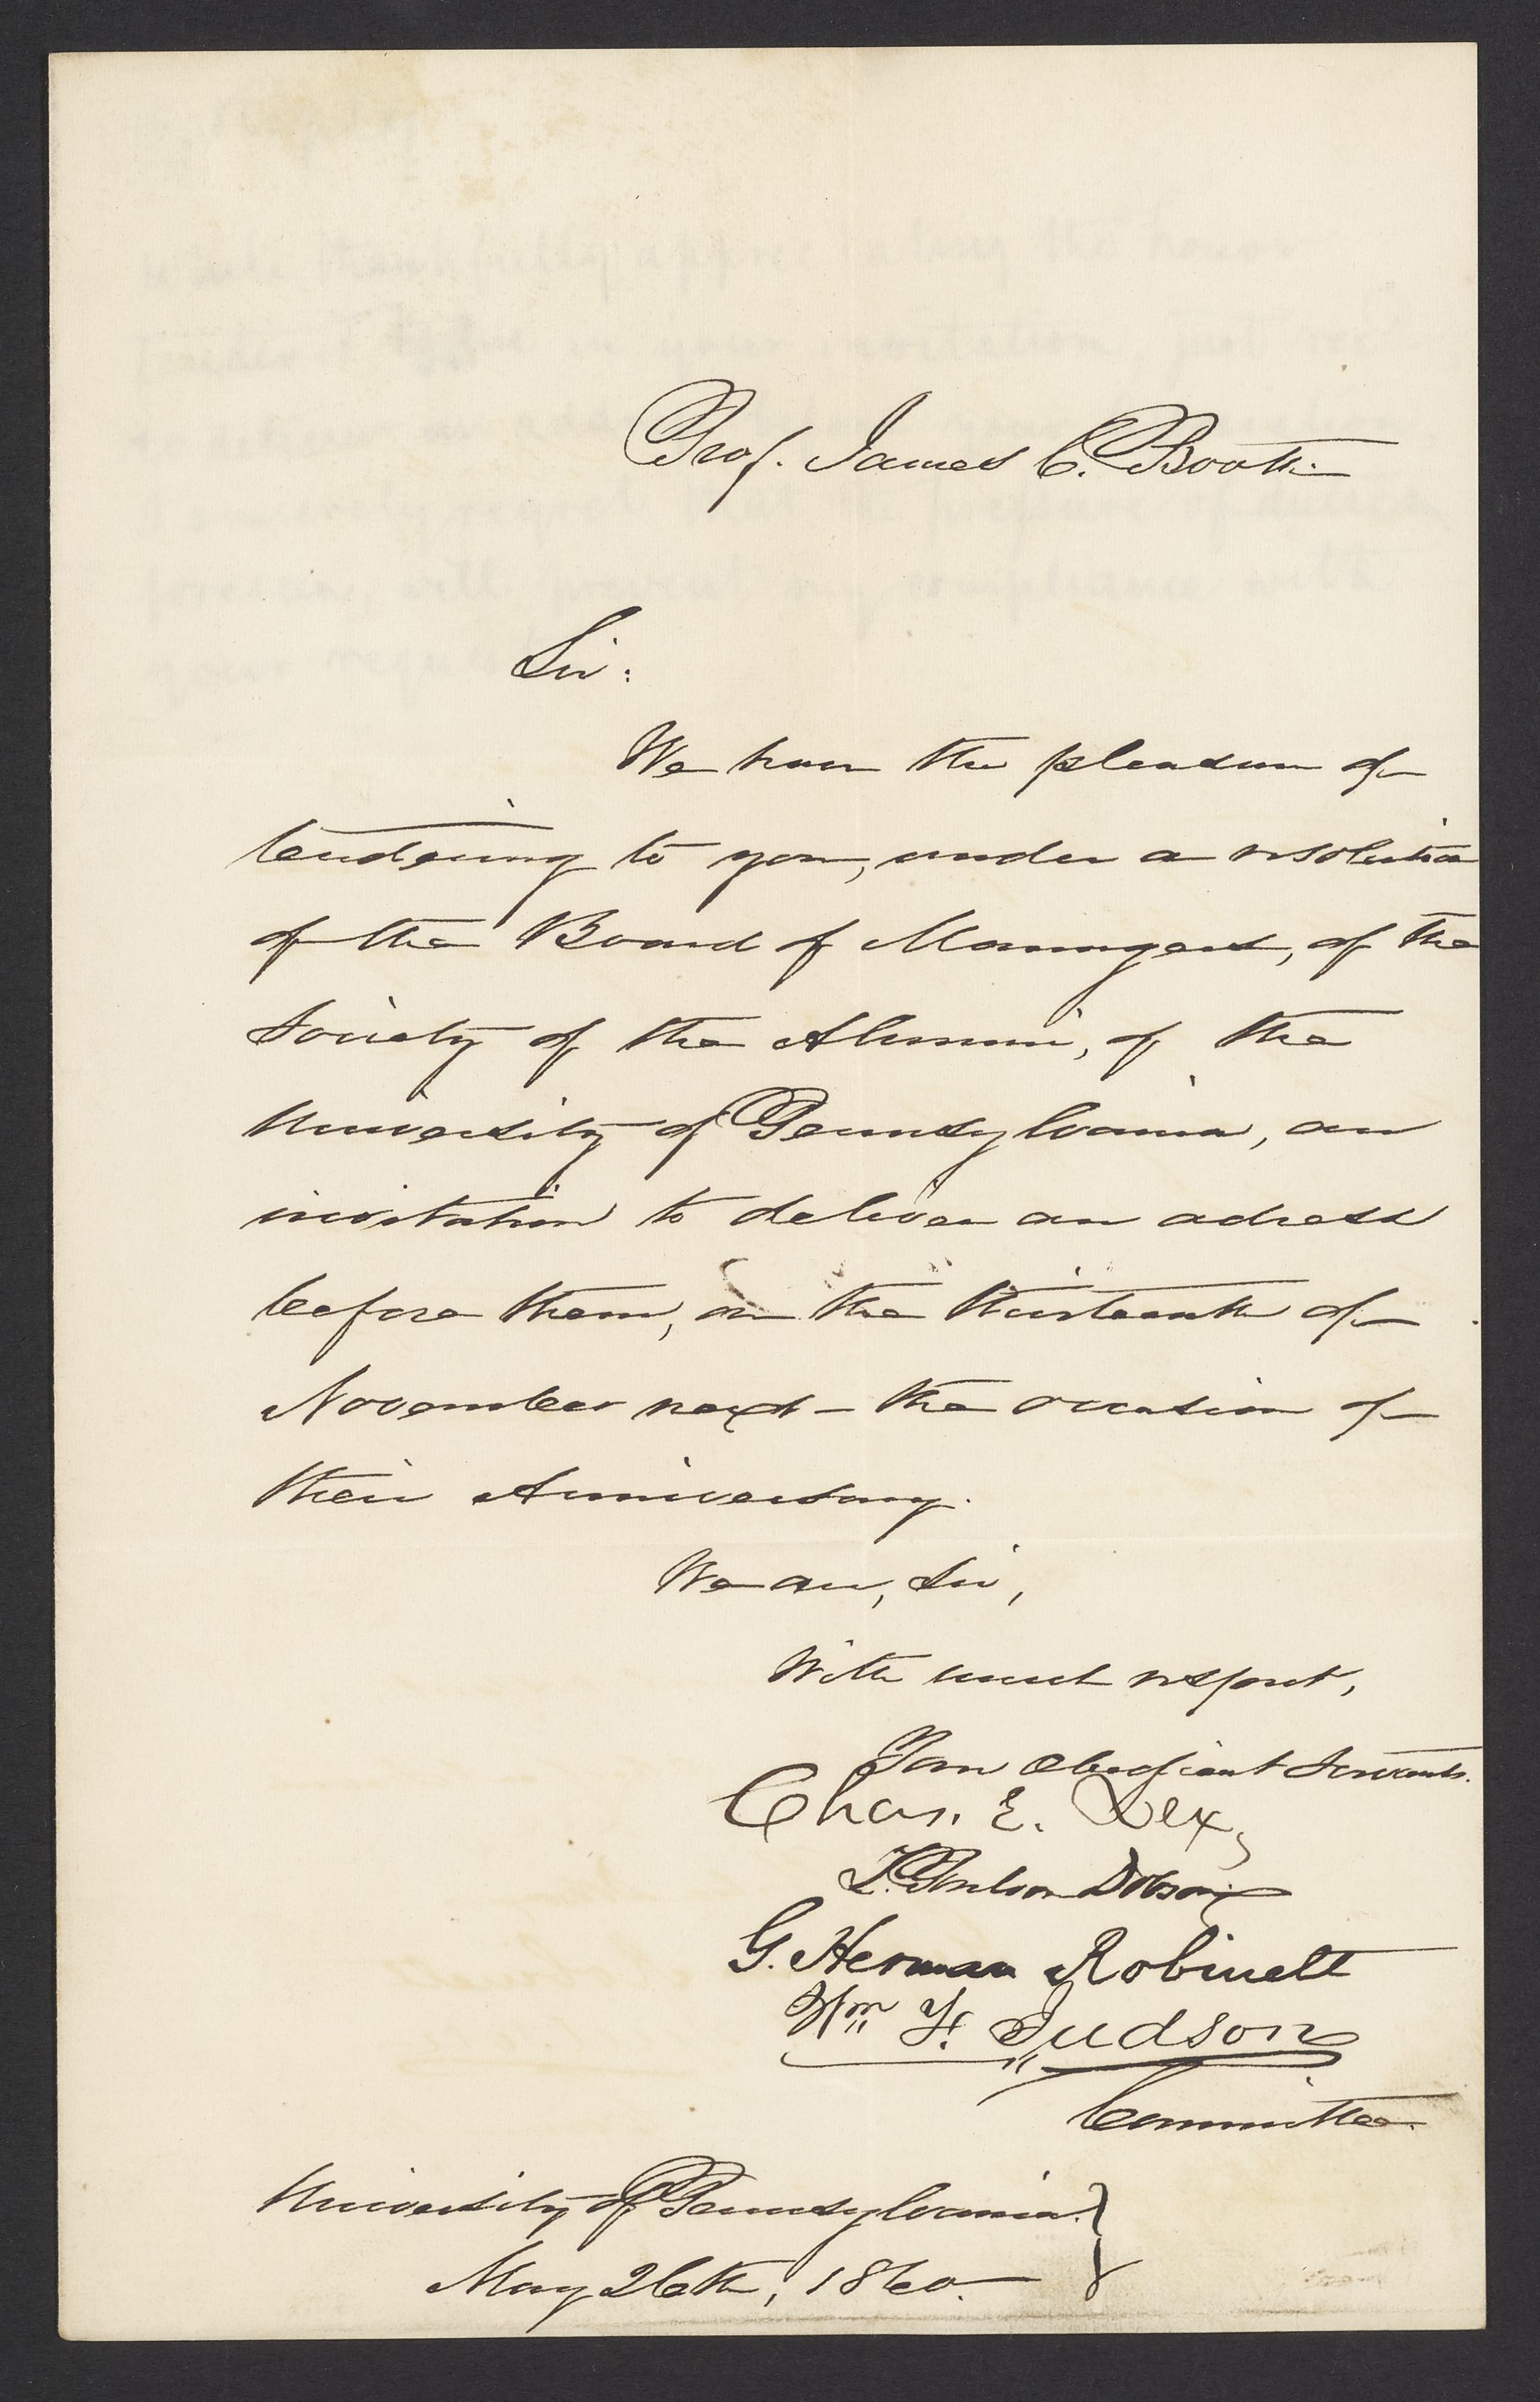 Prof. James C. Booth
Sir:
We have the pleasure of
tendering to you, under a resolution
of the Board of Managers, of the
Society of the Alumni, of the
University of Pennsylvania, an
invitation to deliver an adress
before them, on the thirteenth of
November next – the occasion of
their Anniversary.
We are, Sir,
With much respect,
Your obedient Servants.
Chas. E. Lex,
Dobson
G. Herman Robinett
Wm F. Judson
Committee.
University of Pennsylvania.
May 26th, 1860.